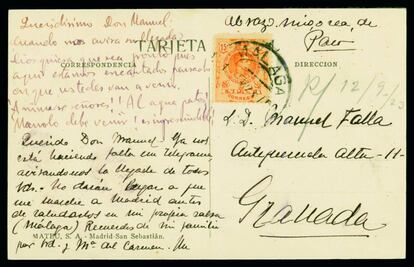 Queridísimo Don Manuel:
Cuando nos avisa su llegada
Dios quiera que sea pronto pues
aquí estamos encantados pensando
en que ustedes van a venir.
Anímense señores!! Al agua patos!
Manolo debe venir! es imprescindible!
TARJETA
CORRESPONDENCIA
Querido Don Manuel = Ya nos
está haciendo falta un telegrama
avisándonos la llegada de todos
Vds. No darán lugar a que
me marche a Madrid antes
de saludarlos en mi propia salsa
(Málaga) Recuerdos de mi familia
para Vd. y Mª del Carmen. Un
MATEU, S. A. - Madrid-San Sebastián.
abrazo
de
15
CORREOS
MALAGA
DIRECCION
R/ 12/9/23
S. D. Manuel Falla
Antequeruela Alta-11-
Granada